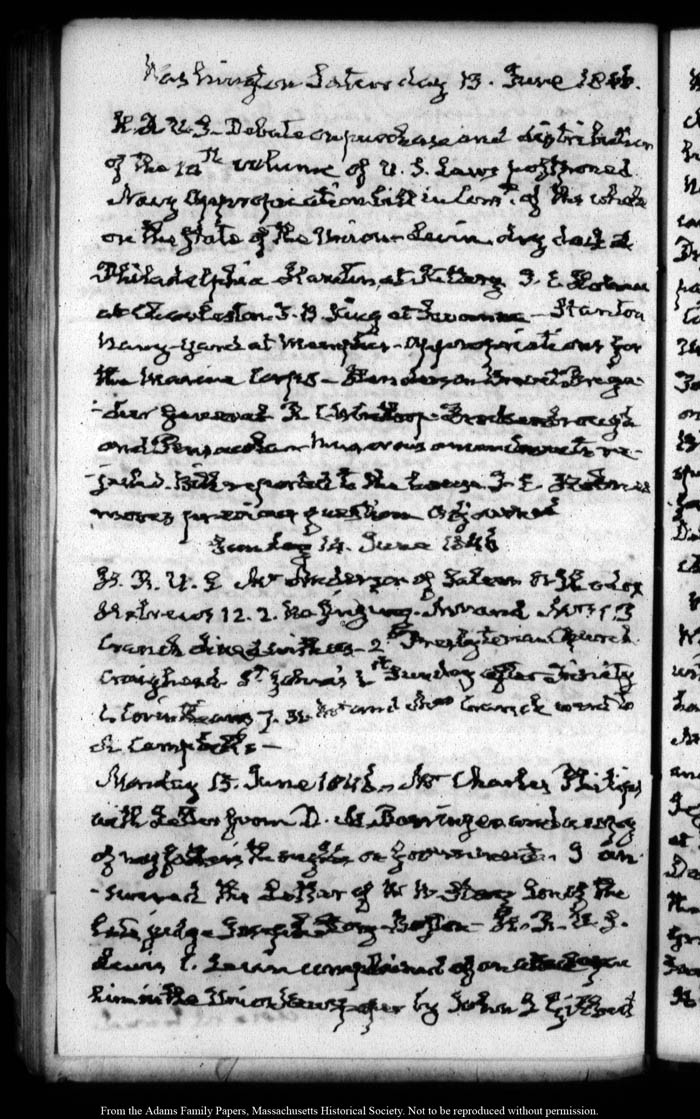 Washington Saturday 13. June 1846.
H. R. U. S. Debate on purchase and distribution
of the 10th volume of U. S. Laws postponed
Navy Appropriation bill in Comee. of the whole
on the State of the Union. Levin. dry dock at
Philadelphia at Kittery I. E. Holmes
at Charleston T. B. King at Savanna - Stanton
Navy-yard at Memphis - appropriations for
the Marine Corps - Henderson Brevet Briga-
dier General R C. Winthrop. Brockenbrough
and Pensacola - Numerous amendments re-
-jected. Bill reported to the house. I. E. Holmes
moves previous question adjourned
Sunday 14. June 1846
H. R. U. S. Mr of Salem
Hebrews 12. 2. no singing. Mr and Mrs
Cranch dined with us - 2d Presbyterian Church.
Craighead St. John's 1st Sunday after Trinity
1. Corinthians 7. 31. Mr and Mrs Cranch went to
Monday 15. June 1846. Mr Charles Philips
with Letter from D. M. Barringer and a copy
of my father's thoughts on Government. I an-
-swered the Letter of W W Story son of the
late judge Joseph Story - Boston - H. R. U. S.
Lewis C. Levin complained of an attack upon
him in the Union Newspaper by John
From the Adams Family Papers, Massachusetts Historical Society. Not to be reproduced without permission.